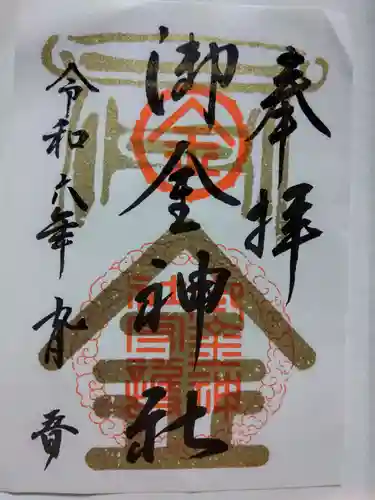 奉拝
御金神社
令和六年九月 春
金